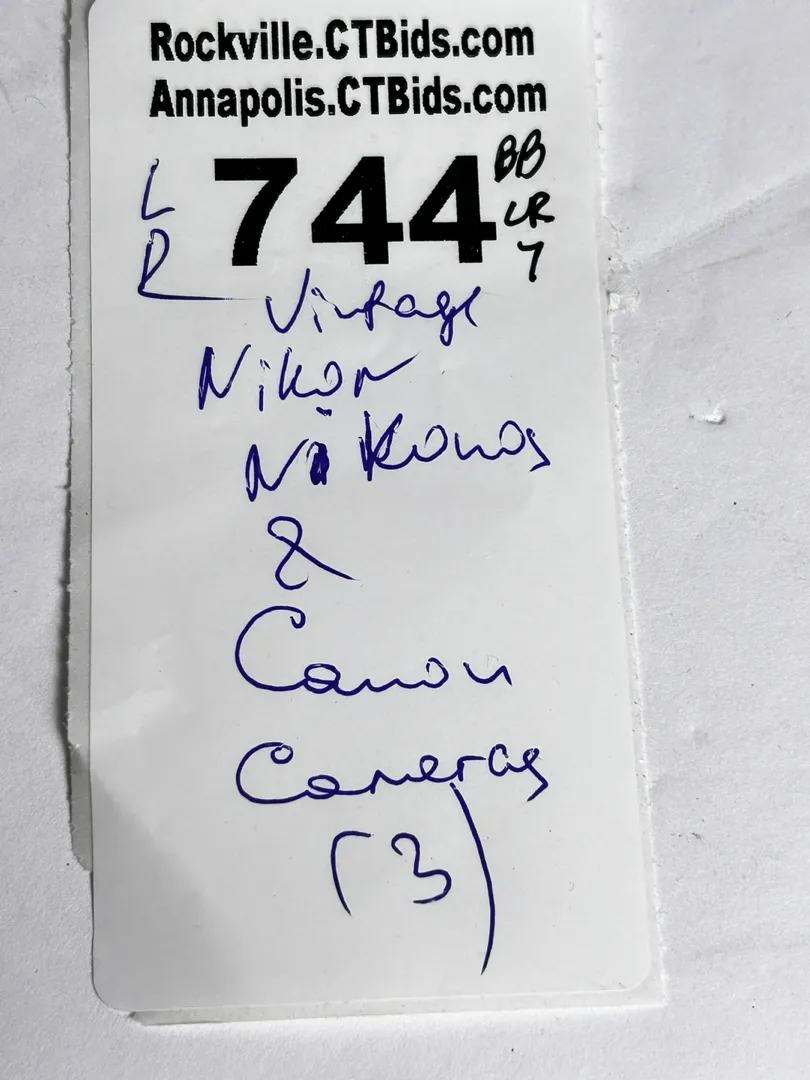 Rockville.CTBids.com
Annapolis.CTBids.com
LR
744
BB
LR
7
Vintage
Nikon
Nikonos
&
Canon
Cameras
(3)